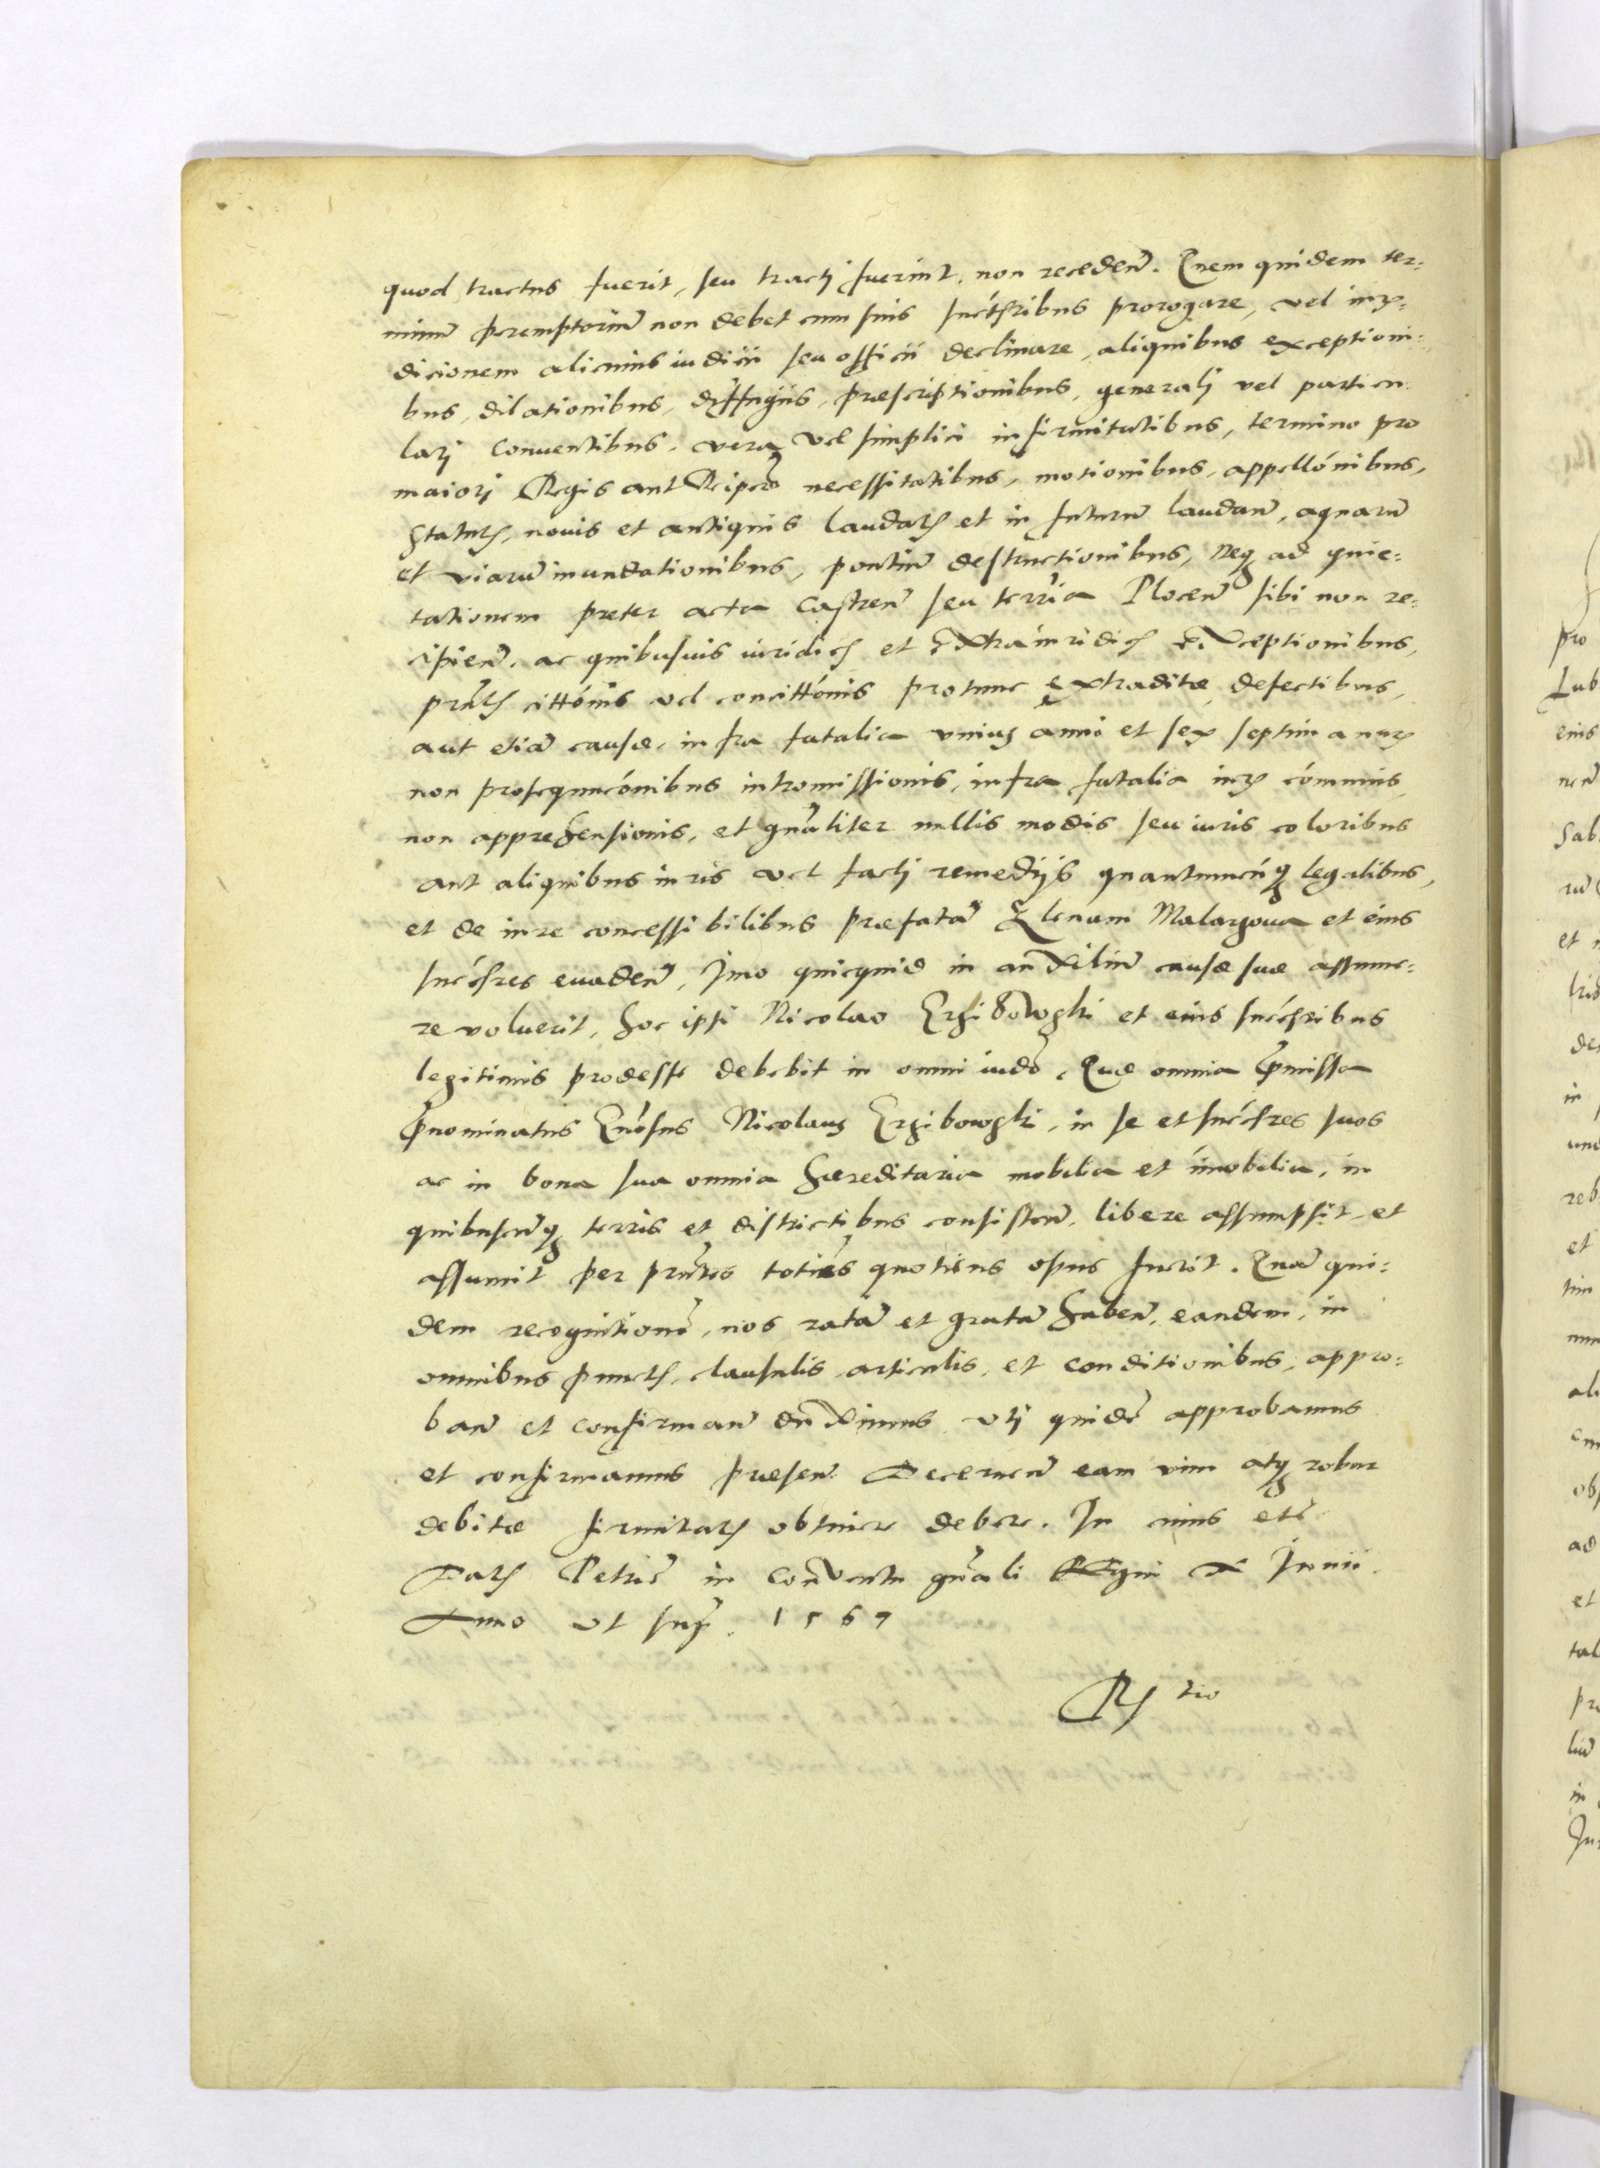 quod tractus fuerit, seu tracti fuerint, non recedeñ. Quem quidem ter-
minũ peremptoriũ non debet cum suis succ̃ribus prorogare, vel iur̃-
dicionem alicuius iudicii seu officii declinare, aliquibus exceptioni-
bus, dilationibus, diffugiis, præscriptionibus, generali vel particu-
lari conventibus, vera vel simplici infirmitatibus, termino pro
maiori Regis aut Reipcæ necessitatibus, motionibus, appellõnibus,
statutis, novis et antiquis laudatis et in futurũ laudañ, aquarũ
et viarũ inundationibus, pontiũ destructionibus, neq ad quie-
tationem preter acta Castreñ seu terrr̃ia Ploceñ sibi non re-
cipieñ, ac quibusuis iuridicis et extraiuridicis exceptionibus,
prñtis cittõnis vel concittõnis protunc extraditæ, defectibus,
aut etiã causæ, infra fatalia unius anni et sex septimanar̃
non prosequucõnibus intromissionis, infra fatalia iur̃ cõmunis,
non apprehensionis, et gñaliter nullis modis seu iuris coloribus
aut aliquibus iuris vel facti remediis quantumcũq legalibus,
et de iure concessibilibus præfatã Elenam Malargowa et eius
succ̃res evadeñ, Imo quicquid in auxiliũ causæ suæ assume-
re voluerit, hoc ipsi Nicolao Erzibowski et eius succ̃ribus
legitimis prodesse debebit in omni iudõ. Quæ omnia p̃missa
p̃nominatus Gñosus Nicolaus Erzibowski, in se et succ̃res suos
ac in bona sua omnia hæreditaria mobilia et ĩmobilia, in
quibuscũq terris et districtibus consisteñ, libere assumpsit et
assumit per prñtes toties quotiens opus fuerit. Quã qui-
dem recognitionẽ, nos ratã et gratã habeñ, eandem, in
omnibus punctis, clausulis, articulis, et conditionibus, appro-
bañ et confirmañ duximus uti quidẽ approbamus
et confirmamus præseñ. Decerneñ eam vim atq robur
debitæ firmitatis obtinere debere. In cuius etc̃
Datis Petric̃ in Conventu gñali Regni X Junii.
Anno ut supr̃. 1567
Rs tio